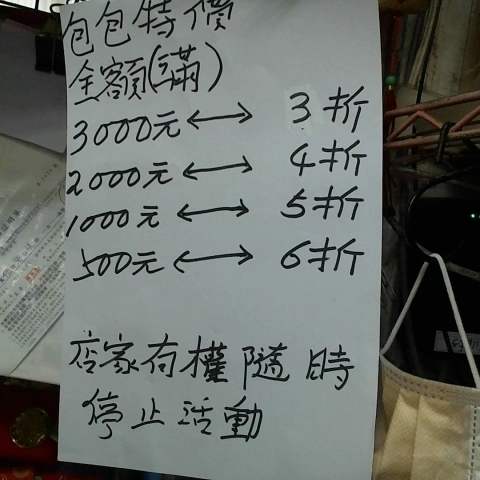 包包特價
全額(滿)
3000元←→ 3折
2000元←→ 4折
1000元←→ 5折
500元←→ 6折
店家有權隨時
停止活動